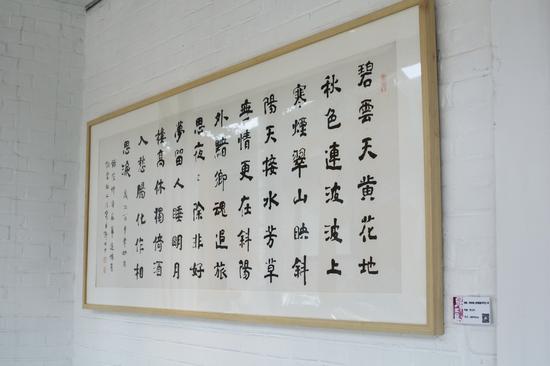 碧雲天黄花地
秋色連波波上
寒煙翠山映斜
陽天接水芳草
無情更在斜陽
外黯鄉魂追旅
思夜〻除非好
夢留人睡明月
樓高休獨倚酒
入愁腸化作相
思淚